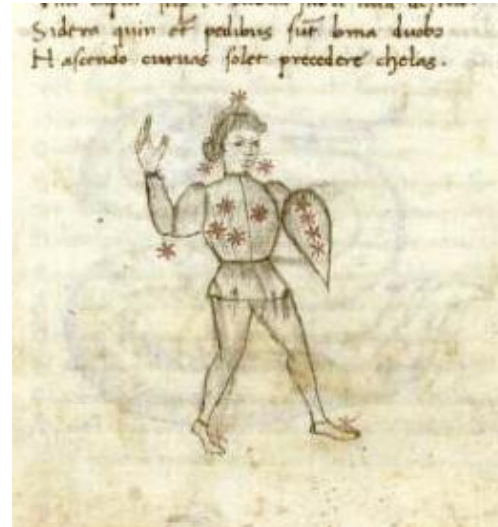 Sidera quin et pedibus sūt bina duobꝰ
Nascendo curvas solet precedere chelas.